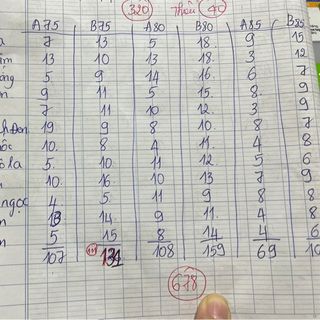 320 Thiếu 40
A75 B75 A80 B80 A85 B85
7 13 5 18 9 15
13 10 13 18 3 12
5 9 14 16 6 7
9 11 5 15 8 9
7 11 10 12 3 9
19 9 8 10 8 7
10 8 4 11 4 8
5 10 11 12 5 6
10 16 10 13 7 9
ngọc 4 5 11 9 8 8
13 14 9 11 4 8
5 15 8 14 4 6
107 131 108 159 69 10
678